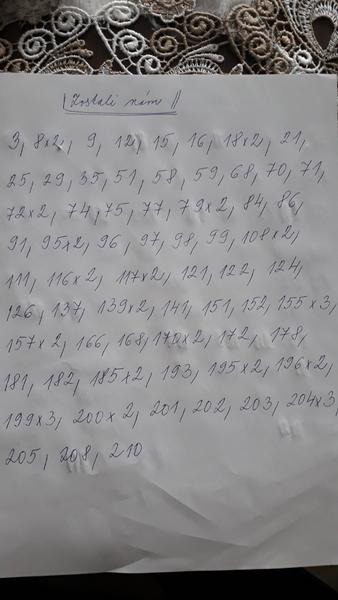 Zostali nám
3, 8x2, 9, 12, 15, 16, 18x2, 21,
25, 29, 35, 51, 58, 59, 68, 70, 71,
72x2, 74, 75, 77, 79x2, 84, 86,
91, 95x2, 96, 97, 98, 99, 108x2,
111, 116x2, 117x2, 121, 122, 124,
126, 137, 139x2, 141, 151, 152, 155x3,
157x2, 166, 168, 170x2, 172, 178,
181, 182, 185x2, 193, 195x2, 196x2,
199x3, 200x2, 201, 202, 203, 204x3,
205, 208, 210